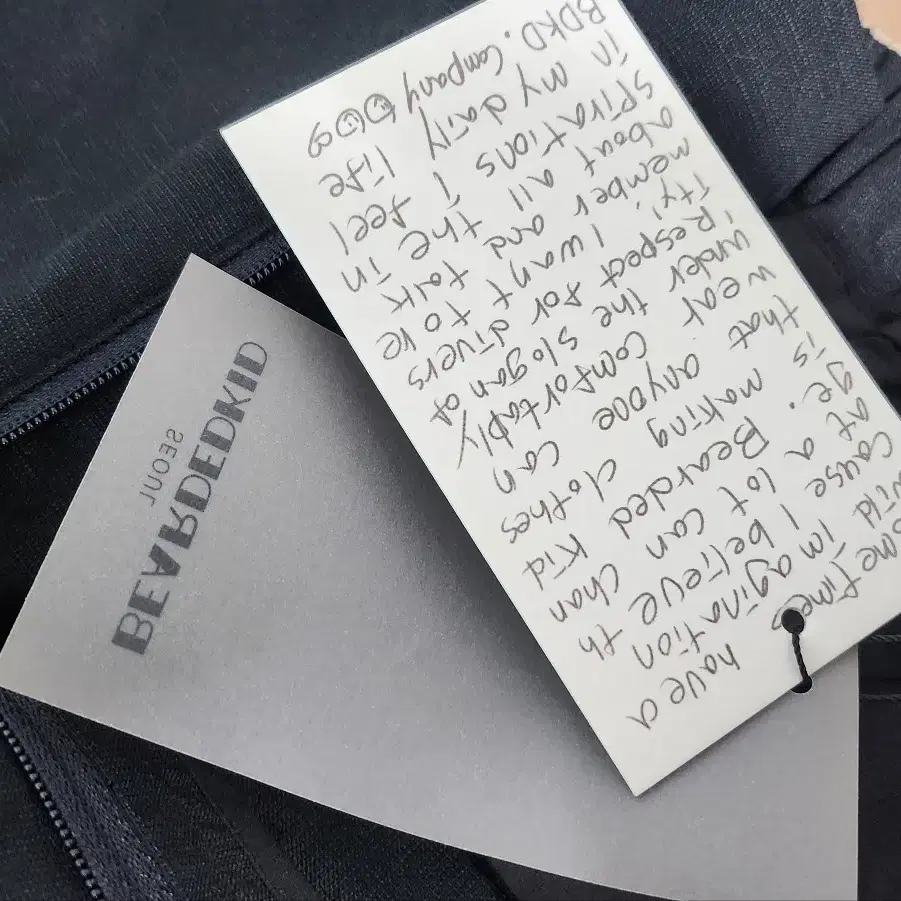 ometimes have a
wild imagination
cause I believe th
at a lot can chan
ge. Bearded Kid
is making clothes
that anyone can
wear comfortably
under the slogan of
'Respect for divers
ity'. I want to re
member and talk
about all the in
spirations I feel
in my daily life
BDKD. Company
BEARDEDKID
SEOUL